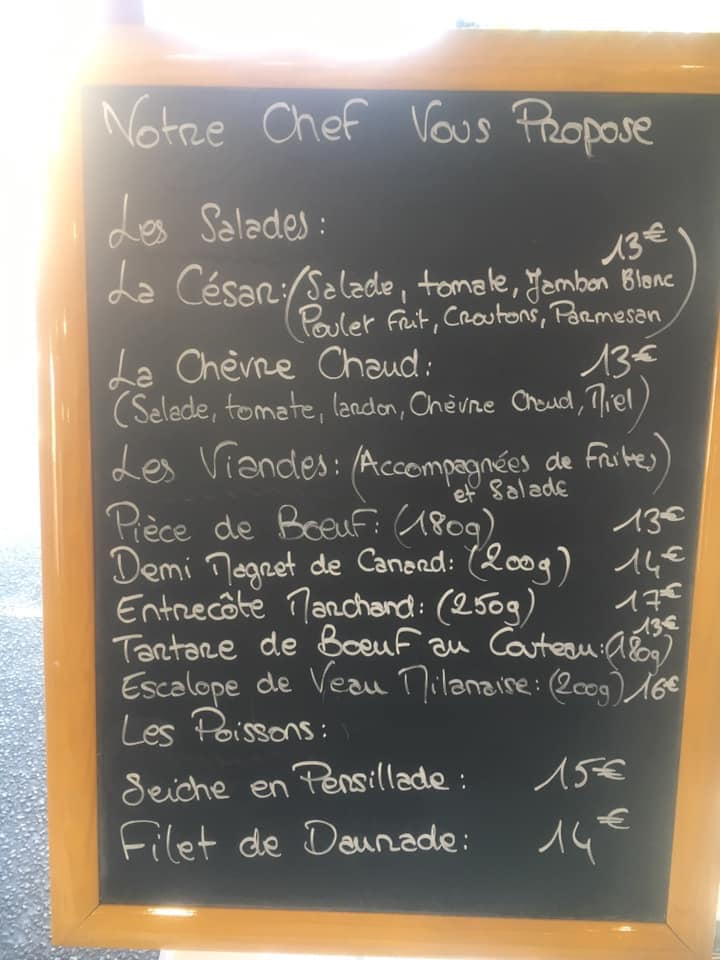 Notre Chef Vous Propose
Les Salades:
13€
La César: (Salade, tomate, Jambon Blanc
Poulet Frit, Croutons, Parmesan)
La Chèvre Chaud: 13€
(Salade, tomate, lardon, Chèvre Chaud, Miel)
Les Viandes: (Accompagnées de Frites)
et Salade
Pièce de Boeuf: (180g) 13€
Demi Magret de Canard: (200g) 14€
Entrecôte Marchard: (250g) 17€
13€
Tartare de Boeuf au Couteau: (180g)
Escalope de Veau Milanaise: (200g) 16€
Les Poissons:
Seiche en Persillade: 15€
Filet de Daurade: 14€